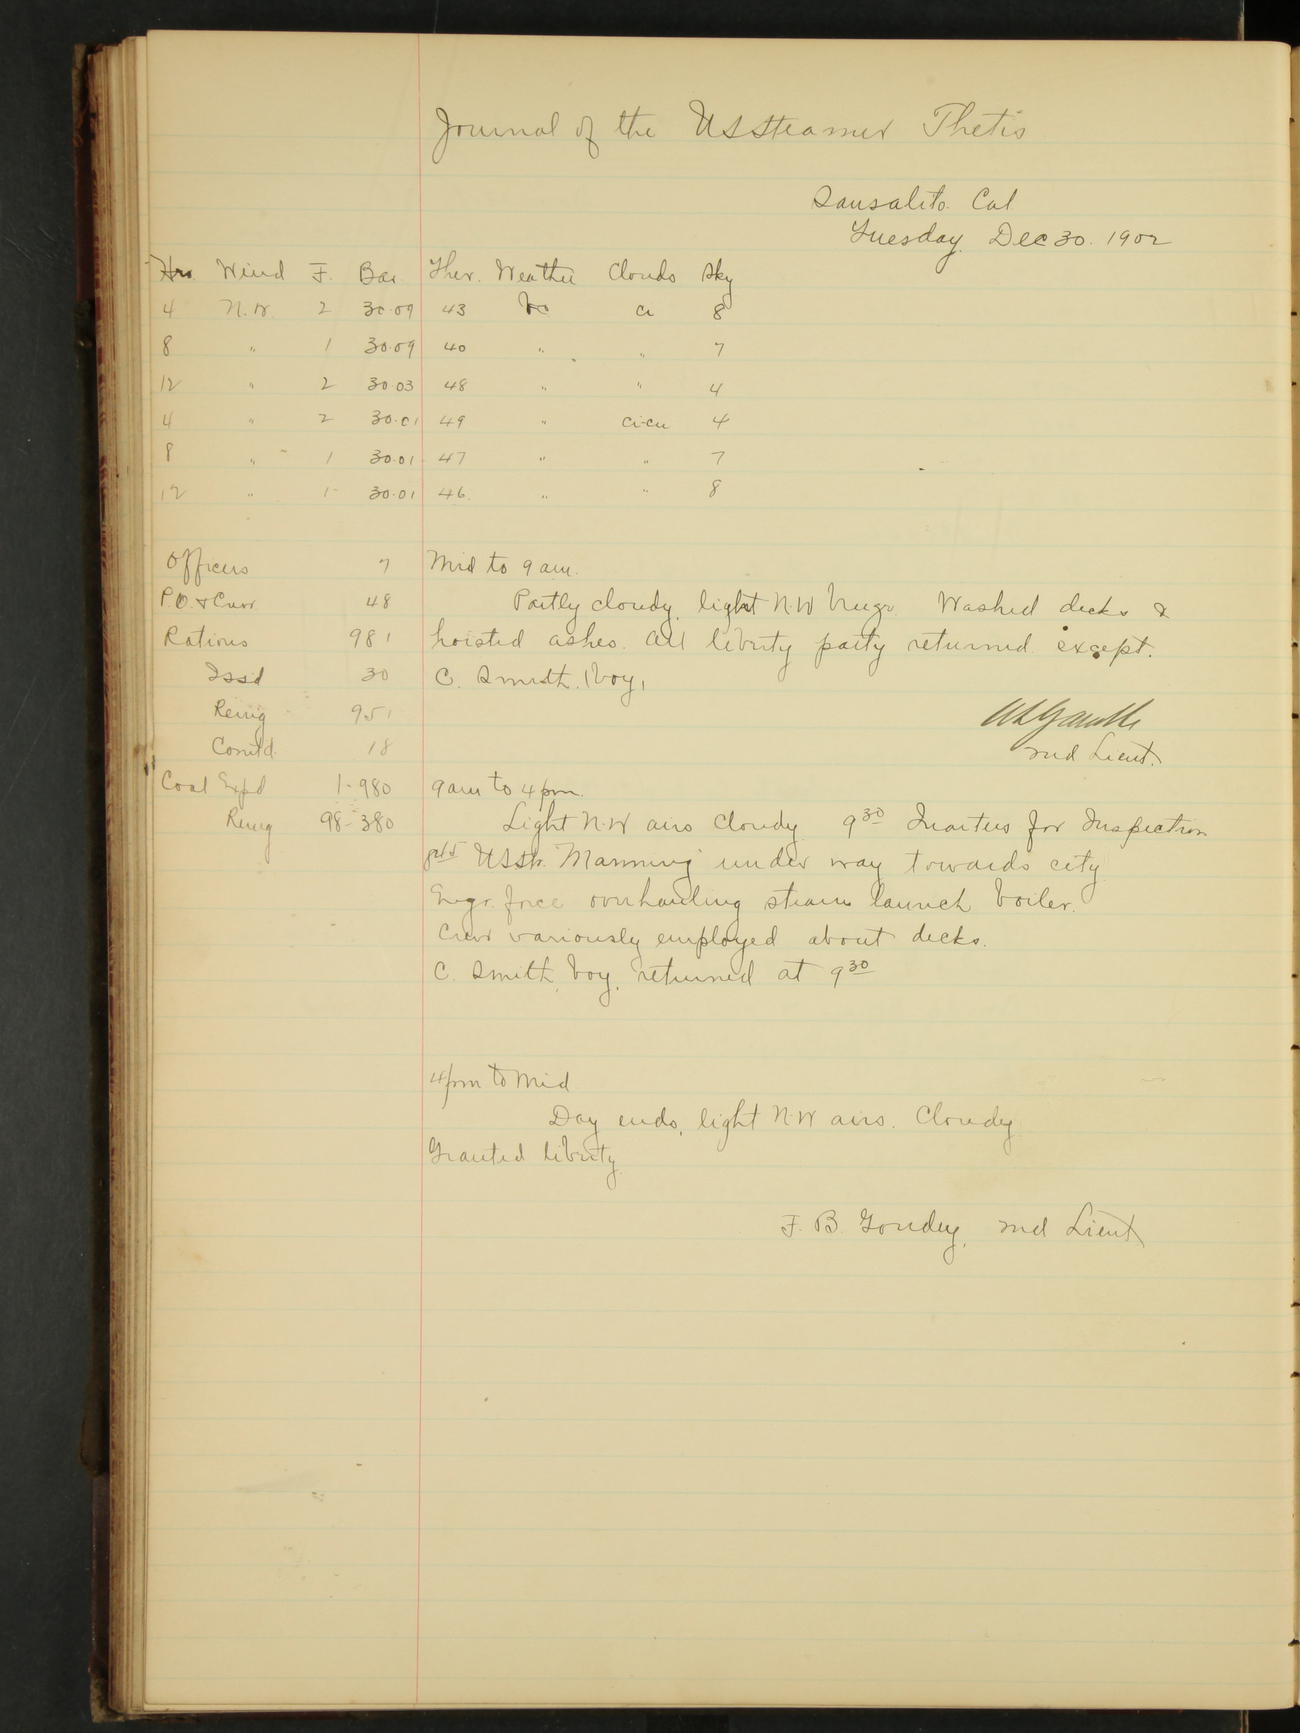 Journal of the US Steamer Thetis
Sausalito. Cal
Tuesday. Dec 30. 1902
Hrs Wind F. Bar. Ther. Weather Clouds Sky
4 N.W. 2 30.09 43 bc ci 8
8 " 1 30.09 40 " " 7
12 " 2 30.03 48 " " 4
4 " 2 30.01 49 " ci-cu 4
8 " 1 30.01 47 " " 7
12 " 1 30.01 46. " " 8
Officers 7
P.O. & Crew 48
Rations 981
Issd 30
Remg 951
Comtd. 18
Coal Expd 1-980
Remg 98-380
Mid to 9 am.
Partly cloudy, light N.W breeze. Washed decks &
hoisted ashes. All liberty party returned except.
C. Smith. (boy)
2nd Lieut.
9 am to 4 pm.
Light N.W airs Cloudy 9 30 Quarters for Inspection
USStr. Manning under way towards city
Engr. force overhauling steam launch boiler.
Crew variously employed about decks.
C. Smith, boy, returned at 9 30
4 pm to Mid
Day ends, light N.W airs. Cloudy
Granted liberty.
F. B. Goudey, 2nd Lieut